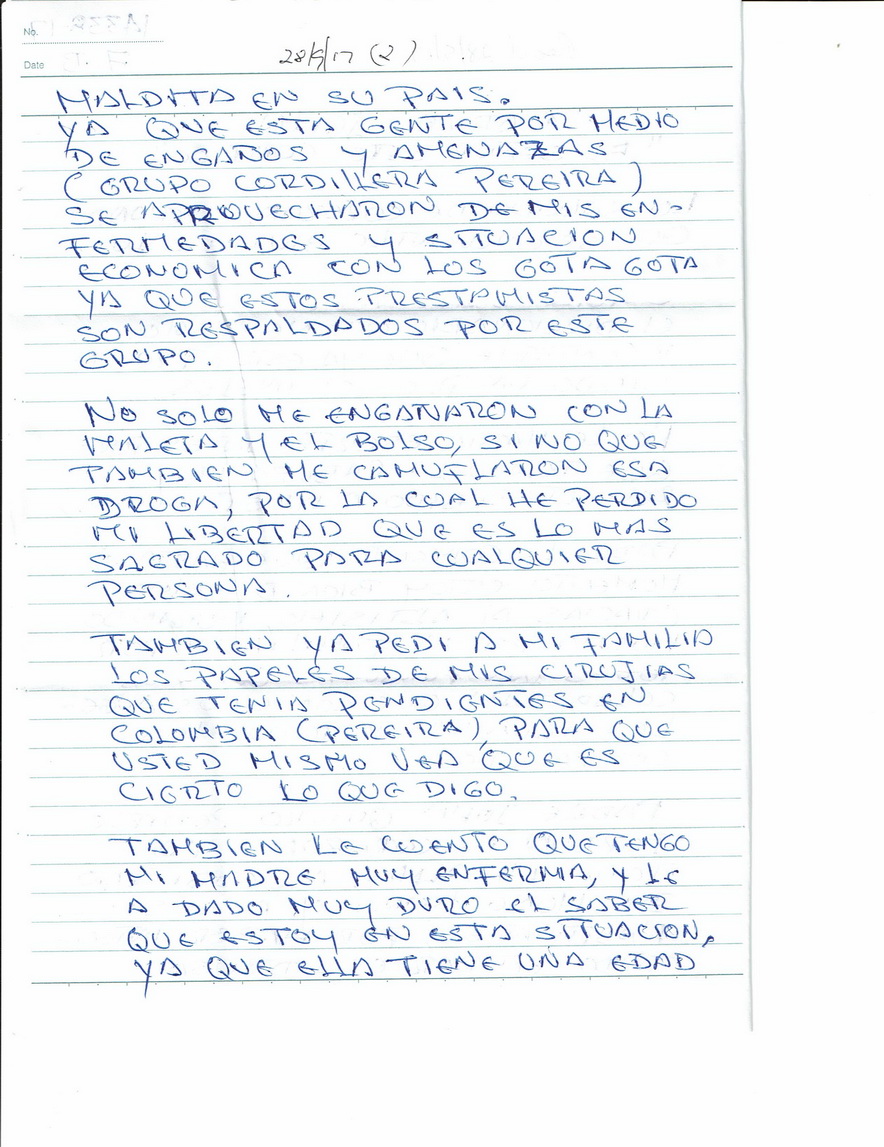 No.
Date 28/9/17 (2)
MALDITA EN SU PAIS.
YA QUE ESTA GENTE POR MEDIO
DE ENGAÑOS Y AMENAZAS
(GRUPO CORDILLERA PEREIRA)
SE APROVECHARON DE MIS EN-
FERMEDADES Y SITUACION
ECONOMICA CON LOS GOTA GOTA
YA QUE ESTOS PRESTAMISTAS
SON RESPALDADOS POR ESTE
GRUPO.
NO SOLO ME ENGAÑARON CON LA
MALETA Y EL BOLSO, SI NO QUE
TAMBIEN ME CAMUFLARON ESA
DROGA, POR LA CUAL HE PERDIDO
MI LIBERTAD QUE ES LO MAS
SAGRADO PARA CUALQUIER
PERSONA.
TAMBIEN YA PEDI A MI FAMILIA
LOS PAPELES DE MIS CIRUJIAS
QUE TENIA PENDIENTES EN
COLOMBIA (PEREIRA), PARA QUE
USTED MISMO VEA QUE ES
CIERTO LO QUE DIGO.
TAMBIEN LE CUENTO QUE TENGO
MI MADRE MUY ENFERMA, Y LE
A DADO MUY DURO EL SABER
QUE ESTOY EN ESTA SITUACION,
YA QUE ELLA TIENE UNA EDAD